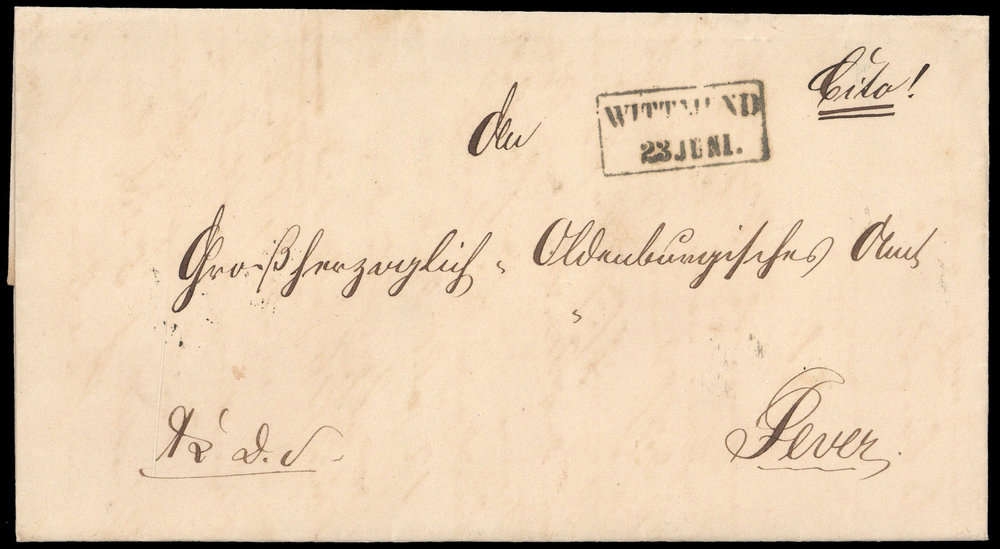 Cito!
WITTMUND
23 JUNI.
den
Großherzoglich- Oldenburgisches Amt
Jever.